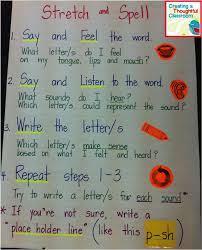 Stretch and Spell
Creating a
Thoughtful
Classroom
1. Say and Feel the word.
What letter/s do I feel
on my tongue, lips and mouth?
2. Say and Listen to the word.
What sounds do I hear?
Which letter/s could represent the sound?
3. Write the letter/s
Which letter/s make sense
based on what I felt and heard?
4. Repeat steps 1-3
Try to write a letter/s for each sound
* If you're not sure, write a
"place holder line" (like this p-sh)